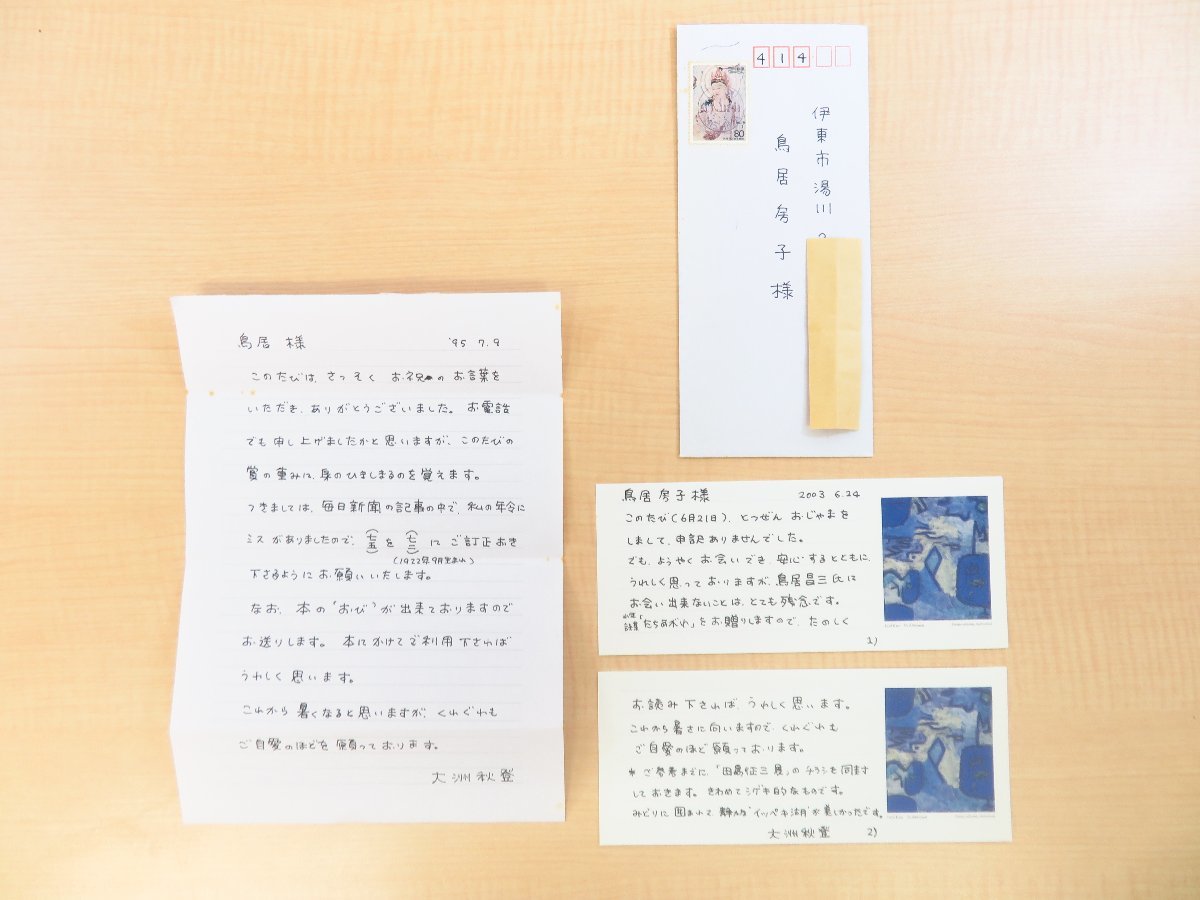 鳥居 様 '95 7.9
このたびは、さっそく お祝の お言葉を
いただき、ありがとうございました。 お電話
でも申し上げましたかと思いますが、このたびの
賞の重みに、身のひきしまるのを覚えます。
つきましては、毎日新聞の記事の中で、私の年令に
ミスがありましたので、(七五)を(七三)にご訂正おき
(1922年9月生まれ)
下さるようにお願いいたします。
なお、本の「おび」が出来ておりますので
お送りします。 本にかけてご利用下されば
うれしく思います。
これから 暑くなると思いますが、くれぐれも
ご自愛のほどを 願っております。
大洲秋登
414
伊東市湯川
鳥居房子様
80
鳥居房子様 2003 6.24
このたび(6月21日)、とつぜん おじゃまを
しまして、申訳ありませんでした。
でも、ようやくお会いでき、安心するとともに、
うれしく思っておりますが、鳥居昌三氏に
お会い出来ないことは、とても残念です。
「たちあがれ」をお贈りしますので、たのしく
1)
お読み下されば、うれしく思います。
これから暑さに向いますので、くれぐれも
ご自愛のほど 願っております。
* ご参考までに、「田島征三展」のチラシを同封
しておきます。 きわめてシゲキ的なものです。
みどりに囲まれて 静かな"イッペキ湖"が美しかったです。
大洲秋登 2)